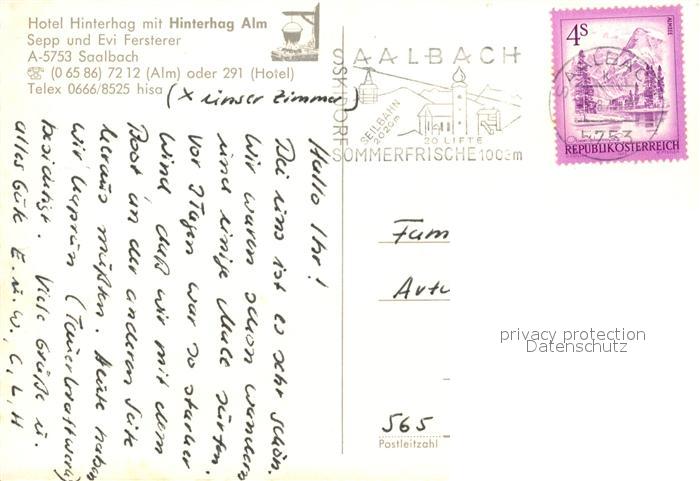 Hotel Hinterhag mit Hinterhag Alm
Sepp und Evi Fersterer
A-5753 Saalbach
☎ (0 65 86) 72 12 (Alm) oder 291 (Hotel)
Telex 0666/8525 hisa
(x unser Zimmer)
Hallo Ihr!
Bei uns ist es sehr schön.
Wir waren schon wandern
und einige Male surfen.
Vor Tagen war so starker
Wind daß wir mit dem
Boot an der anderen Seite
heraus mußten. Heute haben
wir Kaprun (Tauernkraftwerk)
besichtigt. Viele Grüße u.
alles Gute E. u. W., C, L, H
SAALBACH
SKIDORF
SEILBAHN
2020m
20 LIFTE
SOMMERFRISCHE 1003m
4S
ALMSEE
SAALBACH
5753
REPUBLIK ÖSTERREICH
Fam
privacy protection
Datenschutz
565
Postleitzahl